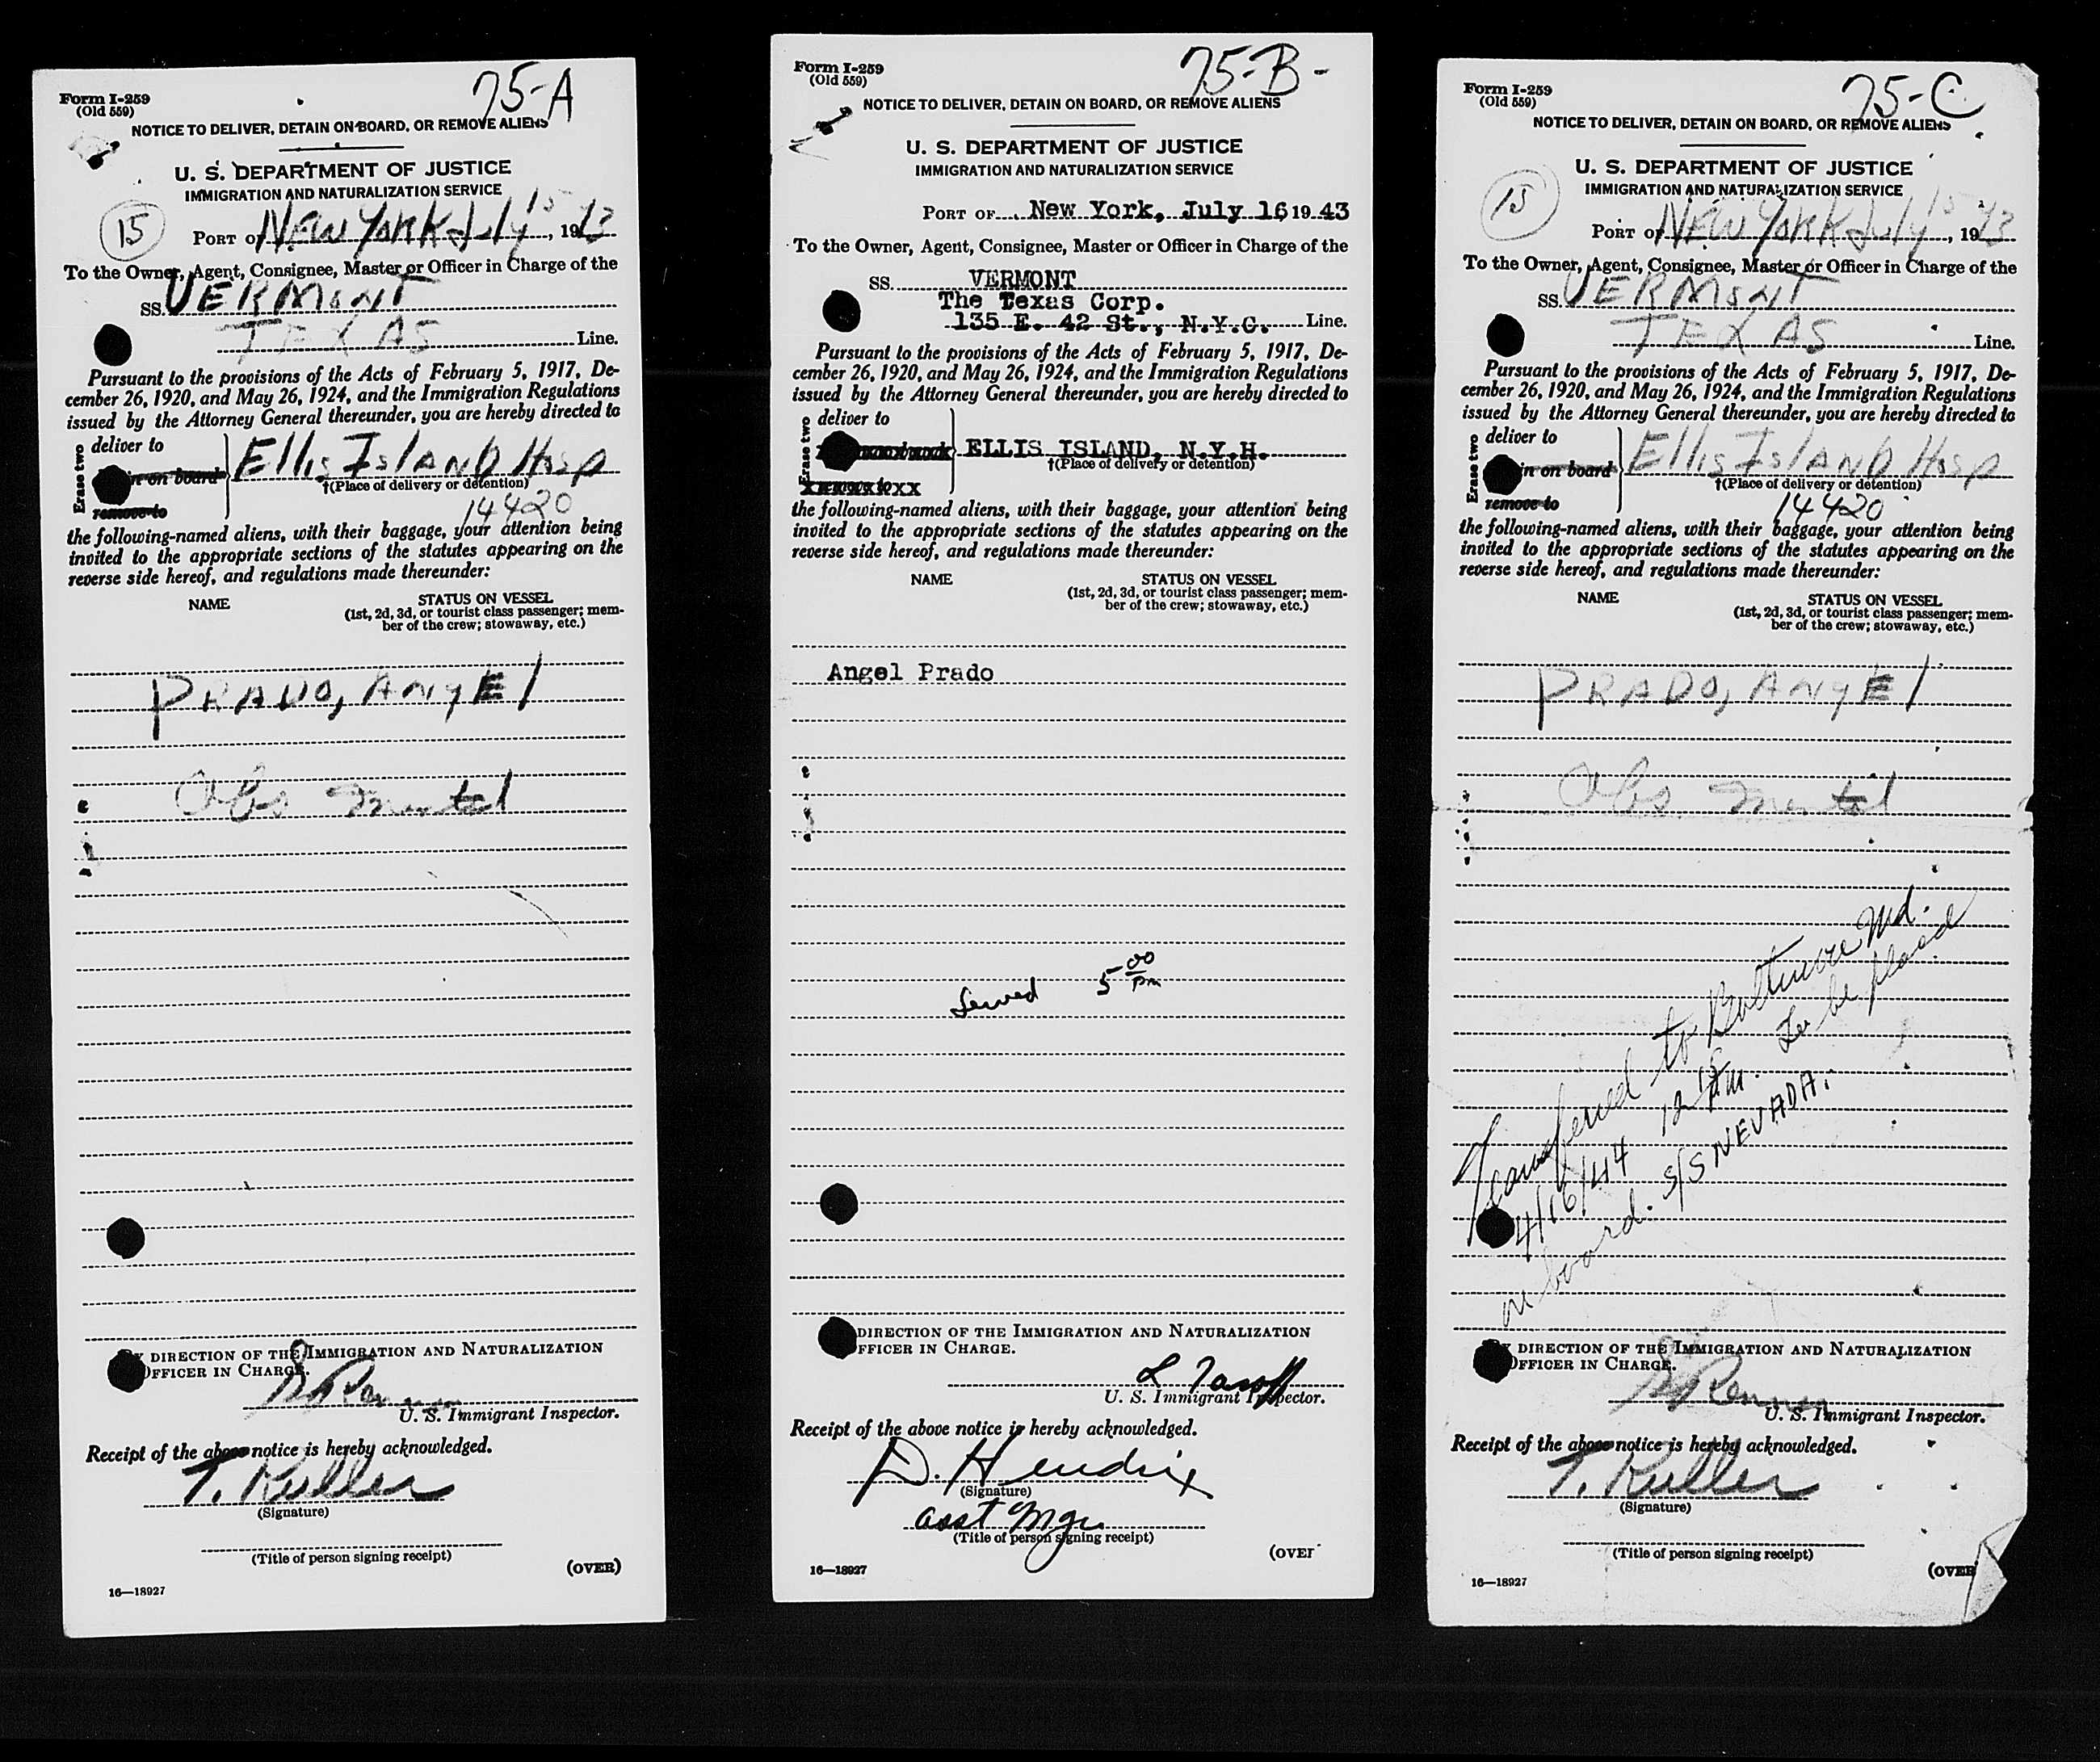 75-A
Form I-259
(Old 559)
NOTICE TO DELIVER, DETAIN ON BOARD, OR REMOVE ALIENS
U. S. DEPARTMENT OF JUSTICE
IMMIGRATION AND NATURALIZATION SERVICE
15
PORT OF NEW YORK July 15, 1943
To the Owner, Agent, Consignee, Master or Officer in Charge of the
SS. VERMONT
TEXAS Line.
Pursuant to the provisions of the Acts of February 5, 1917, De-
cember 26, 1920, and May 26, 1924, and the Immigration Regulations
issued by the Attorney General thereunder, you are hereby directed to
Erase two
deliver to
in on board
Ellis Island Hosp
†(Place of delivery or detention)
remove to
14420
the following-named aliens, with their baggage, your attention being
invited to the appropriate sections of the statutes appearing on the
reverse side hereof, and regulations made thereunder:
NAME
STATUS ON VESSEL
(1st, 2d, 3d, or tourist class passenger; mem-
ber of the crew; stowaway, etc.)
PRADO, ANgEl
Obs mental
BY DIRECTION OF THE IMMIGRATION AND NATURALIZATION
OFFICER IN CHARGE.
U. S. Immigrant Inspector.
Receipt of the above notice is hereby acknowledged.
T. Kuller
(Signature)
(Title of person signing receipt)
(OVER)
16—18927
75-B-
Form I-259
(Old 559)
NOTICE TO DELIVER, DETAIN ON BOARD, OR REMOVE ALIENS
U. S. DEPARTMENT OF JUSTICE
IMMIGRATION AND NATURALIZATION SERVICE
PORT OF New York, July 16 1943
To the Owner, Agent, Consignee, Master or Officer in Charge of the
SS. VERMONT
The Texas Corp.
135 E. 42 St., N.Y.C. Line.
Pursuant to the provisions of the Acts of February 5, 1917, De-
cember 26, 1920, and May 26, 1924, and the Immigration Regulations
issued by the Attorney General thereunder, you are hereby directed to
Erase two
deliver to
ELLIS ISLAND, N.Y.H.
†(Place of delivery or detention)
the following-named aliens, with their baggage, your attention being
invited to the appropriate sections of the statutes appearing on the
reverse side hereof, and regulations made thereunder:
NAME
STATUS ON VESSEL
(1st, 2d, 3d, or tourist class passenger; mem-
ber of the crew; stowaway, etc.)
Angel Prado
Served 5 00 pm
DIRECTION OF THE IMMIGRATION AND NATURALIZATION
FFICER IN CHARGE.
U. S. Immigrant Inspector.
Receipt of the above notice is hereby acknowledged.
D. Hendrix
(Signature)
asst Mgr.
(Title of person signing receipt)
(OVER
16—18927
75-C
Form I-259
(Old 559)
NOTICE TO DELIVER, DETAIN ON BOARD, OR REMOVE ALIENS
U. S. DEPARTMENT OF JUSTICE
IMMIGRATION AND NATURALIZATION SERVICE
15
PORT OF NEW YORK July 15, 1943
To the Owner, Agent, Consignee, Master or Officer in Charge of the
SS. VERMONT
TEXAS Line.
Pursuant to the provisions of the Acts of February 5, 1917, De-
cember 26, 1920, and May 26, 1924, and the Immigration Regulations
issued by the Attorney General thereunder, you are hereby directed to
Erase two
deliver to
in on board
Ellis Island Hosp
†(Place of delivery or detention)
remove to
14420
the following-named aliens, with their baggage, your attention being
invited to the appropriate sections of the statutes appearing on the
reverse side hereof, and regulations made thereunder:
NAME
STATUS ON VESSEL
(1st, 2d, 3d, or tourist class passenger; mem-
ber of the crew; stowaway, etc.)
PRADO, ANgEl
Obs mental
Transferred to Baltimore Md.
4/16/44 12 15 AM. To be placed
on board. S/S NEVADA.
BY DIRECTION OF THE IMMIGRATION AND NATURALIZATION
OFFICER IN CHARGE.
U. S. Immigrant Inspector.
Receipt of the above notice is hereby acknowledged.
T. Kuller
(Signature)
(Title of person signing receipt)
(OVER
16—18927